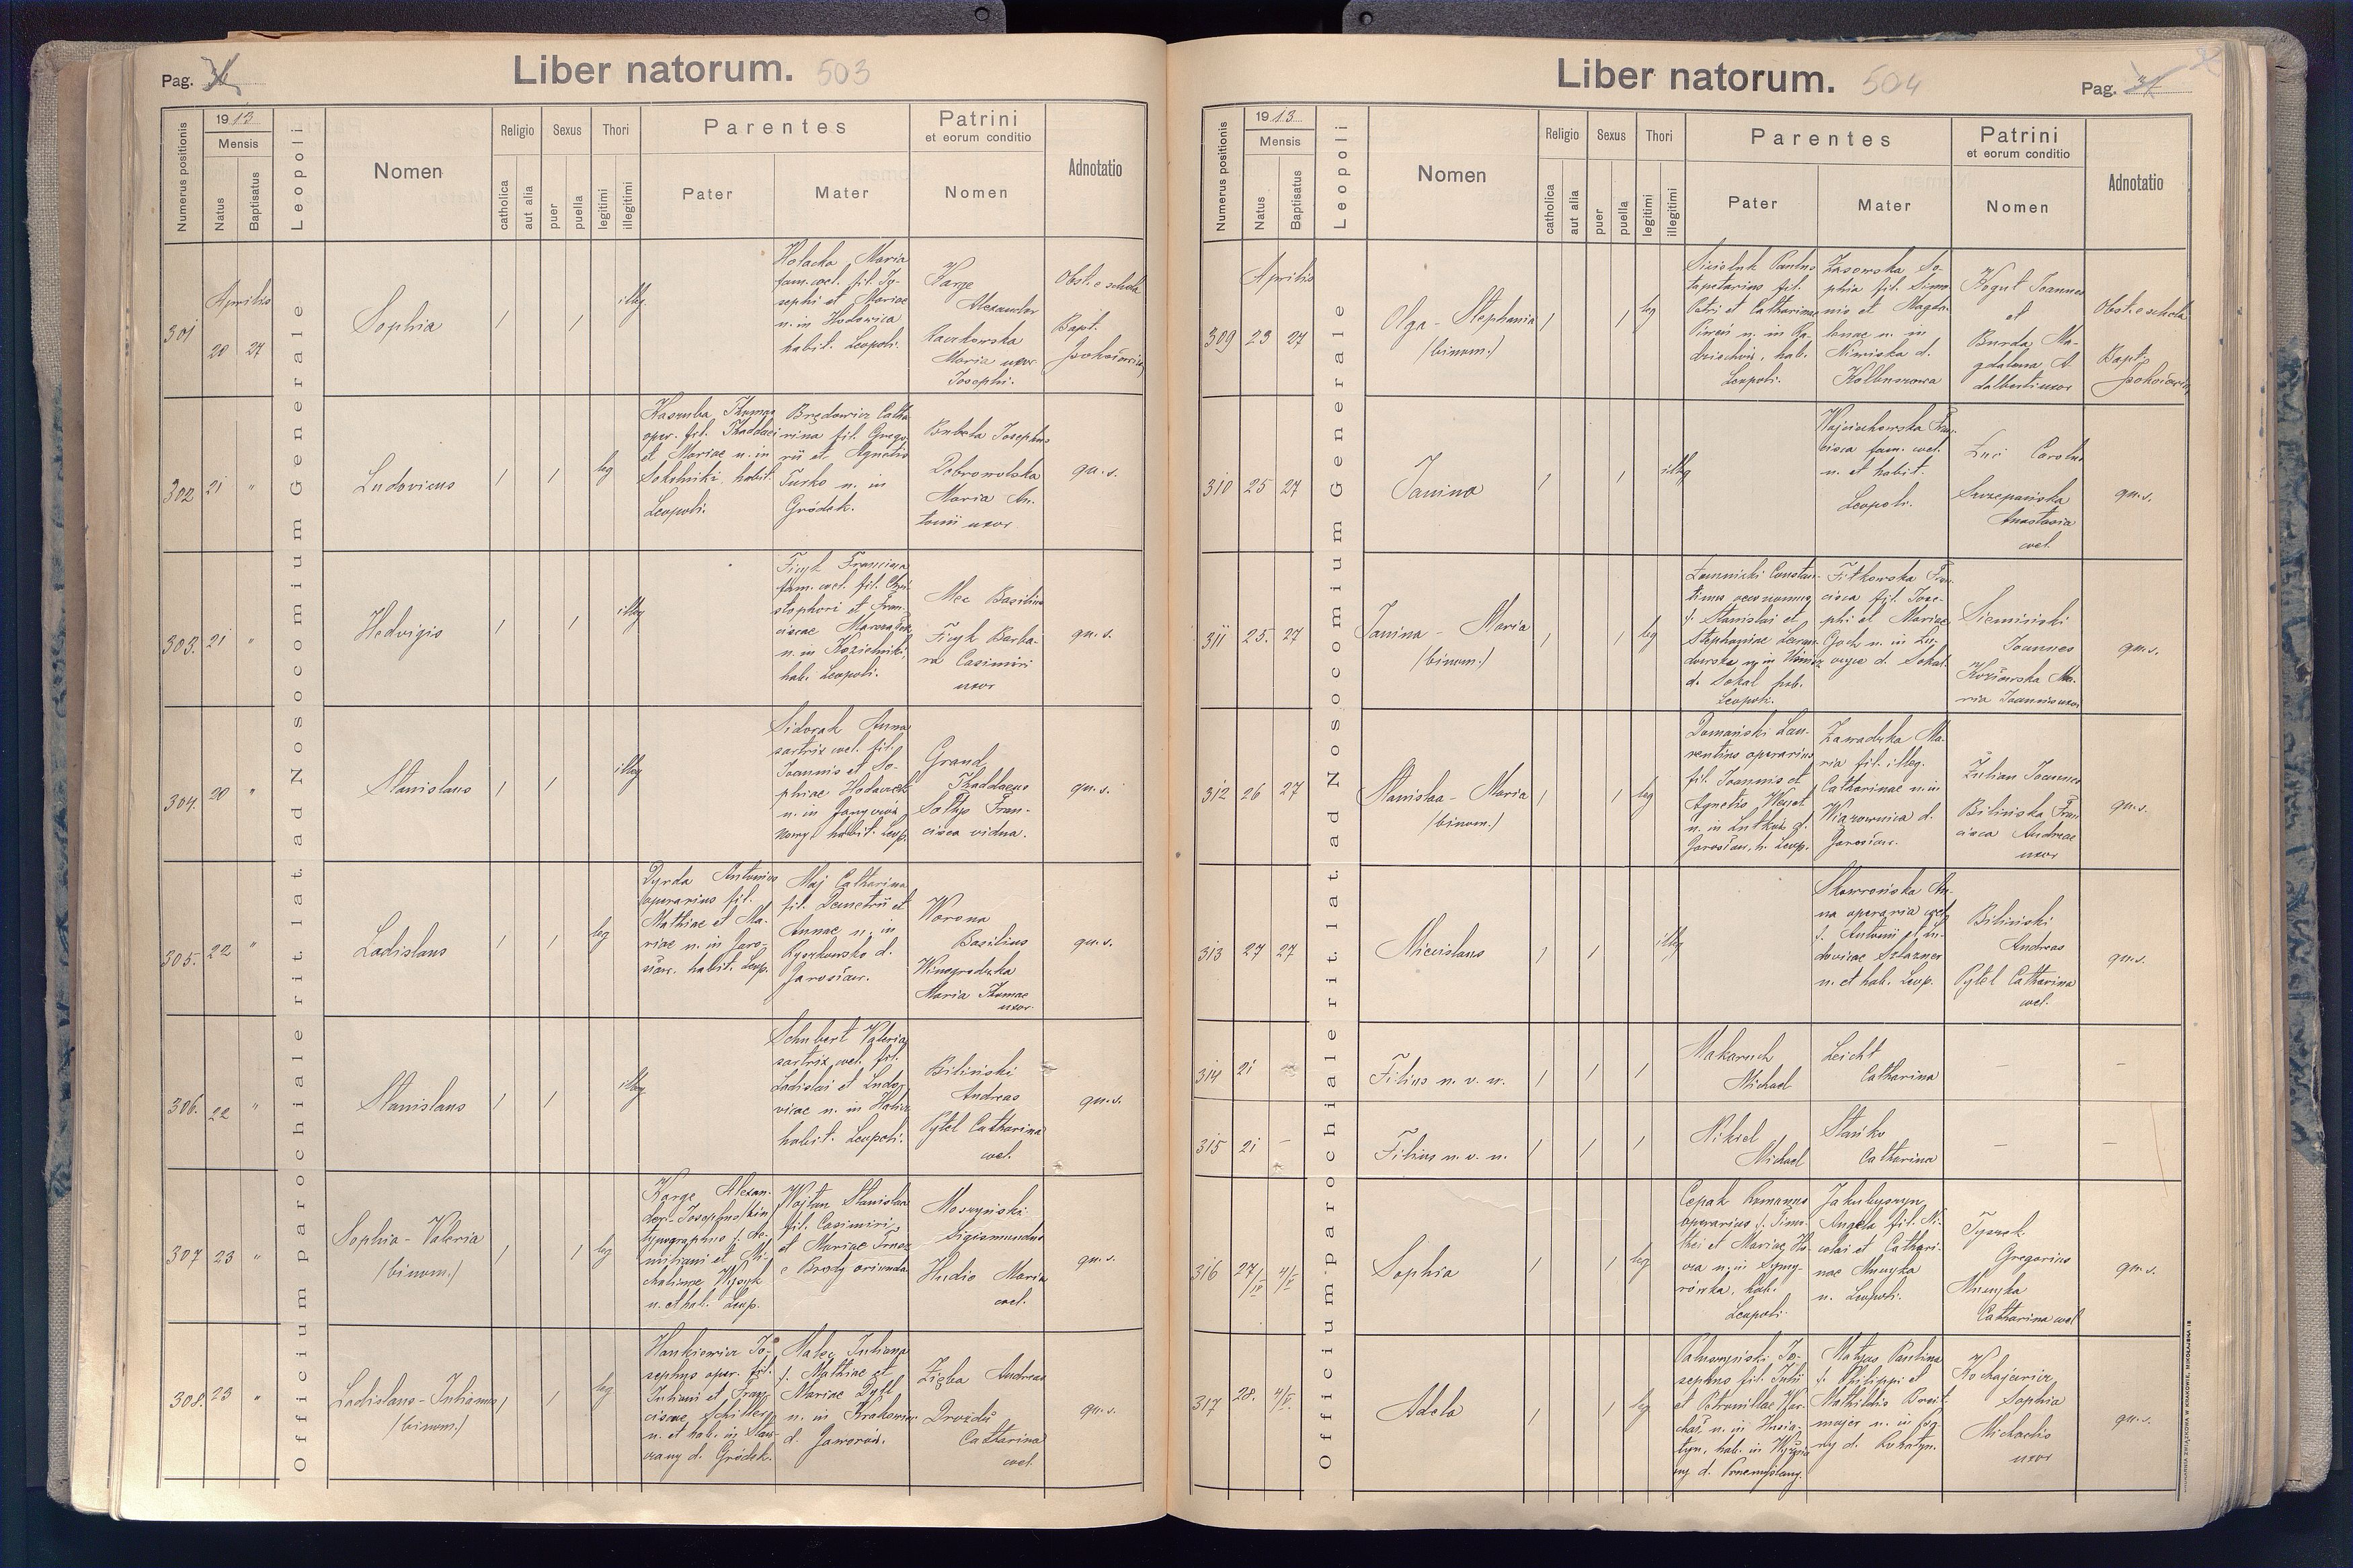 Pag. 36
Liber natorum. 503
Numerus positionis
1913
Mensis
Natus
Baptisatus
Leopoli
Nomen
Religio
catholica
aut alia
Sexus
puer
puella
Thori
legitimi
illegitimi
Parentes
Pater
Mater
Patrini
et eorum conditio
Nomen
Adnotatio
Officium parochiale rit. lat. ad Nosocomium Generale
301
Aprilis
20 27
Sophia
illeg.
Holacka Maria
fam. cael. fil. Jo-
sephi et Mariae
n. in Hodowica
habit. Leopoli.
Karge
Alexander
Raczkowska
Maria uxor
Josephi.
Obst. e schola
Bapt.
302 21 "
Ludovicus
leg
Kaszuba Thomas
oper. fil. Thaddaei
et Mariae n. in
Sokolniki, habit.
Leopoli.
Brzdowicz Catha
rina fil. Grego
rii et Agnetis
Turko n. in
Gródek.
Bubela Josephus
Dobrowolska
Maria An-
tonii uxor
qu. s.
303. 21 "
Hedvigis
illeg
Ficyk Francisca
fam. cael. fil. Chri
stophori et Fran-
ciscae
n. in Kozielniki,
hab. Leopoli.
Mec Basilius
Ficyk Barba-
ra Casimiri
uxor
qu. s.
304. 20 "
Stanislaus
illeg
Sidorak Anna
sartrix cael. fil.
Joannis et So-
phiae
n. in
habit. Leop.
Grand
Thaddaeus
Sołtys Fran-
cisca vidua.
qu. s.
305. 22 "
Ladislaus
leg
Dyrda Antonius
operarius fil.
Mathiae et Ma-
riae n. in Jaro-
sław. habit. Leop.
Maj Catharina
fil. Demetrii et
Annae n. in
d.
Jarosław.
Worona
Basilius
Winogrodzka
Maria Thomae
uxor.
qu. s.
306. 22 "
Stanislaus
illeg
Schubert Valeria
sartrix cael. fil.
Ladislai et Ludo-
vicae n. in Halicz
habit. Leopoli.
Biliński
Andreas
Pytel Catharina
cael.
qu. s.
307 23 "
Sophia - Valeria
/binom./
leg
Karge Alexan-
der-Josephus/bin
typographus f. Ae-
miliani et Mi-
chalinae Wysyk
n. et hab. Leop.
Wojtan Stanislaa
fil. Casimiri
et Mariae
e Brody oriunda
Moszyński
Sigismundus
Hudio Maria
cael.
qu. s.
308. 23 "
Ladislaus - Julianus
/binom./
leg
Hankiewicz Jo-
sephus oper. fil.
Juliani et Fran-
ciscae Schiller
n. et hab. in
d. Gródek.
Malec Juliana
f. Mathiae et
Mariae Dybl
n. in Krakowiec
d. Jaworów.
Zięba Andreas
Droździł
Catharina
cael.
qu. s.
Liber natorum. 504
Pag. 37
Numerus positionis
1913
Mensis
Natus
Baptisatus
Leopoli
Nomen
Religio
catholica
aut alia
Sexus
puer
puella
Thori
legitimi
illegitimi
Parentes
Pater
Mater
Patrini
et eorum conditio
Nomen
Adnotatio
Officium parochiale rit. lat. ad Nosocomium Generale
Aprilis
309 23 27
Olga - Stephania
/binom./
leg
Paulus
tapetarius fil.
Petri et Catharinae
n. in
hab.
Leopoli.
Zasowska So-
phia fil. Simo
nis et Magda-
lenae n. in
Niwiska d.
Kolbuszowa
Kogut Joannes
et
Burda Ma-
gdalena A
dalberti uxor
Obst. e schola
Bapt.
310 25 27
Janina
illeg
Wojciechowska Fran-
cisca fam. cael.
n. et habit.
Leopoli.
Żuri Carolus
Szczepańska
Anastasia
cael.
qu. s.
311 25. 27
Janina - Maria
/binom./
leg
Łomnicki Constan-
tinus oeconomus
f. Stanislai et
Stephaniae
d. Sokal hab.
Leopoli.
Fitkowska Fran-
cisca fil. Jose-
phi et Mariae
n. in
d. Sokal.
Siemiński
Joannes
Ma-
ria Joannis uxor
qu. s.
312 26 27
Stanislaa - Maria
/binom./
leg
Domański Lau-
rentius operarius
fil. Joannis et
Agnetis
n. in Lutków d.
Jarosław, h. Leop.
Zawadzka Ma-
ria fil. illeg.
Catharinae n. in
Wiązownica d.
Jarosław.
Żulian Joannes
Bilińska Fran
cisca Andreae
uxor
qu. s.
313 27 27
Miecislaus
illeg
Skowrońska An-
na operaria cael.
f. Antonii et Lu-
dovicae Szlazner
n. et hab. Leop.
Biliński
Andreas
Pytel Catharina
cael.
qu. s.
314 21 -
Filius n. v. n.
Makaruch
Michael
Leicht
Catharina
315 21 -
Filius n. v. n.
Nikiel
Michael
Stańko
Catharina
316 27/IV 4/V
Sophia
leg
Cepak Romanus
operarius f. Timo-
thei et Mariae
n. in Szmy-
rówka, hab.
Leopoli.
Jakubyszyn
Angela fil. Ni-
colai et Cathari-
nae
n. Leopoli.
Tyszek
Gregorius
Catharina cael
qu. s.
317 28. 4/V.
Adela
leg
Paluszyński Jo-
sephus fil. Julii
et Petronillae
n. in Husia-
tyn, hab. in
d. Przemyślany.
Matyas Paulina
f. Philippi et
Mathildis Breit-
majer n. in
d. Rohatyn.
Kochajewicz
Sophia
Michaelis
uxor
qu. s.
DRUKARNIA ZWIĄZKOWA W KRAKOWIE, MIKOŁAJSKA 13